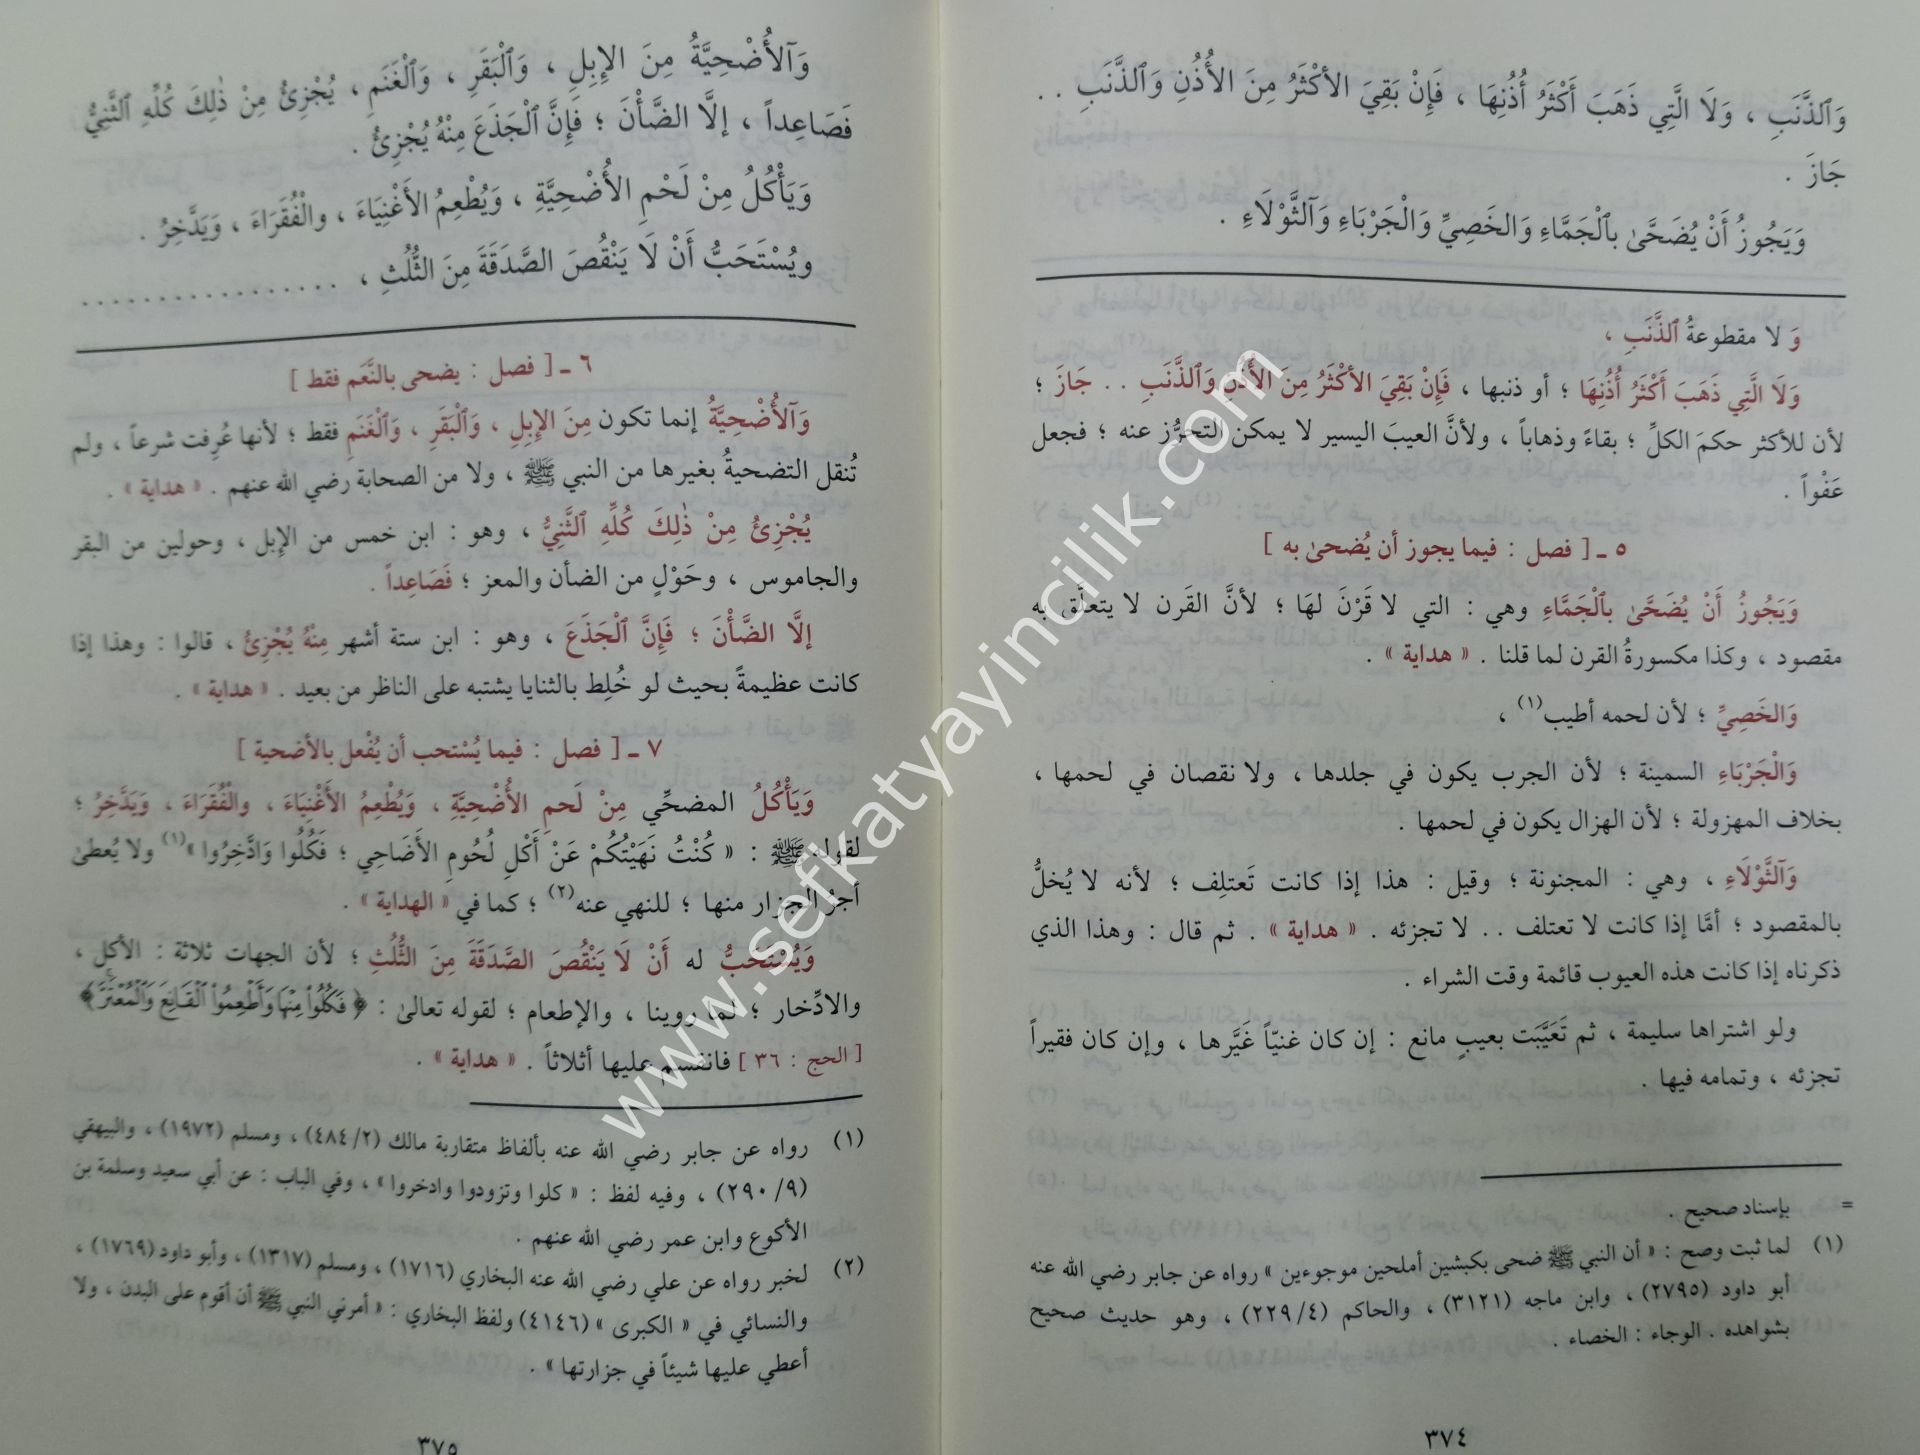 وَٱلذَّنَبِ ، وَلَا الَّتِي ذَهَبَ أَكْثَرُ أُذُنِهَا ، فَإِنْ بَقِيَ الأَكْثَرُ مِنَ الأُذُنِ وَٱلذَّنَبِ . .
جَازَ .
وَيَجُوزُ أَنْ يُضَحَّىٰ بِٱلْجَمَّاءِ وَالخَصِيِّ وَالْجَرْبَاءِ وَٱلثَّوْلَاءِ .
وَ لا مقطوعةُ ٱلذَّنَبِ ،
وَلَا الَّتِي ذَهَبَ أَكْثَرُ أُذُنِهَا ؛ أو ذنبها ، فَإِنْ بَقِيَ الأَكْثَرُ مِنَ الأُذُنِ وَٱلذَّنَبِ . . جَازَ ؛
لأن للأكثر حكمَ الكلِّ ؛ بقاءً وذهاباً ، ولأنَّ العيبَ اليسير لا يمكن التحرُّز عنه ؛ فجعل
عَفْواً .
٥ ـ [ فصل : فيما يجوز أن يُضحىٰ به ]
وَيَجُوزُ أَنْ يُضَحَّىٰ بِٱلْجَمَّاءِ وهي : التي لا قَرْنَ لهَا ؛ لأنَّ القَرن لا يتعلَّق به
مقصود ، وكذا مكسورةُ القرن لما قلنا . « هداية » .
وَالخَصِيِّ ؛ لأن لحمه أطيب(١) ،
وَالْجَرْبَاءِ السمينة ؛ لأن الجرب يكون في جلدها ، ولا نقصان في لحمها ،
بخلاف المهزولة ؛ لأن الهزال يكون في لحمها .
وَٱلثَّوْلَاءِ ، وهي : المجنونة ؛ وقيل : هذا إذا كانت تَعتلِف ؛ لأنه لا يُخلُّ
بالمقصود ؛ أمَّا إذا كانت لا تعتلف . . لا تجزئه . « هداية » . ثم قال : وهذا الذي
ذكرناه إذا كانت هذه العيوب قائمة وقت الشراء .
ولو اشتراها سليمة ، ثم تَعَيَّبَت بعيبٍ مانع : إن كان غنيّاً غَيَّرها ، وإن كان فقيراً
تجزئه ، وتمامه فيها .
= بإسناد صحيح .
(١) لما ثبت وصح : « أن النبي ﷺ ضحى بكبشين أملحين موجوءين » رواه عن جابر رضي الله عنه
أبو داود (٢٧٩٥) ، وابن ماجه (٣١٢١) ، والحاكم (٢٢٩/٤) ، وهو حديث صحيح
بشواهده . الوجاء : الخصاء .
٣٧٤
وَٱلأُضْحِيَّةُ مِنَ الإِبِلِ ، وَٱلْبَقَرِ ، وَٱلْغَنَمِ ، يُجْزِئُ مِنْ ذٰلِكَ كُلِّهِ ٱلثَّنِيُّ
فَصَاعِداً ، إلَّا الضَّأْنَ ؛ فَإِنَّ ٱلْجَذَعَ مِنْهُ يُجْزِئُ .
وَيَأْكُلُ مِنْ لَحْمِ الأُضْحِيَّةِ ، وَيُطْعِمُ الأَغْنِيَاءَ ، والْفُقَرَاءَ ، وَيَدَّخِرُ .
ويُسْتَحَبُّ أَنْ لَا يَنْقُصَ الصَّدَقَةَ مِنَ الثُّلُثِ ، . . . . . . . . . . . . . . . . .
٦ ـ [ فصل : يضحى بالنَّعَم فقط ]
وَٱلأُضْحِيَّةُ إنما تكون مِنَ الإِبِلِ ، وَٱلْبَقَرِ ، وَٱلْغَنَمِ فقط ؛ لأنها عُرِفت شرعاً ، ولم
تُنقل التضحيةُ بغيرها من النبي ﷺ ، ولا من الصحابة رضي الله عنهم . « هداية » .
يُجْزِئُ مِنْ ذٰلِكَ كُلِّهِ ٱلثَّنِيُّ ، وهو : ابن خمس من الإبل ، وحولين من البقر
والجاموس ، وحَوْلٍ من الضأن والمعز ؛ فَصَاعِداً .
إلَّا الضَّأْنَ ؛ فَإِنَّ ٱلْجَذَعَ ، وهو : ابن ستة أشهر مِنْهُ يُجْزِئُ ، قالوا : وهذا إذا
كانت عظيمةً بحيث لو خُلِط بالثنايا يشتبه على الناظر من بعيد . « هداية » .
٧ ـ [ فصل : فيما يُسْتحب أن يُفْعل بالأضحية ]
وَيَأْكُلُ المضحِّي مِنْ لَحمِ الأُضْحِيَّةِ ، وَيُطْعِمُ الأَغْنِيَاءَ ، والْفُقَرَاءَ ، وَيَدَّخِرُ ؛
لقوله ﷺ : « كُنْتُ نَهَيْتُكُمْ عَنْ أَكْلِ لُحُومِ الأَضَاحِي ؛ فَكُلُوا وَادَّخِرُوا »(١) ولا يُعطىٰ
أجرُ الجزار منها ؛ للنهي عنه(٢) ؛ كما في « الهداية » .
وَيُسْتَحَبُّ له أَنْ لَا يَنْقُصَ الصَّدَقَةَ مِنَ الثُّلُثِ ؛ لأن الجهات ثلاثة : الأكل ،
والادِّخار ؛ لما روينا ، والإطعام ؛ لقوله تعالىٰ : ﴿ فَكُلُوا۟ مِنْهَا وَأَطْعِمُوا۟ ٱلْقَانِعَ وَٱلْمُعْتَرَّ ﴾
[ الحج : ٣٦ ] فانقسم عليها أثلاثاً . « هداية » .
(١) رواه عن جابر رضي الله عنه بألفاظ متقاربة مالك (٤٨٤/٢) ، ومسلم (١٩٧٢) ، والبيهقي
(٢٩٠/٩) ، وفيه لفظ : « كلوا وتزودوا وادخروا » ، وفي الباب : عن أبي سعيد وسلمة بن
الأكوع وابن عمر رضي الله عنهم .
(٢) لخبر رواه عن علي رضي الله عنه البخاري (١٧١٦) ، ومسلم (١٣١٧) ، وأبو داود (١٧٦٩) ،
والنسائي في « الكبرى » (٤١٤٦) ولفظ البخاري : « أمرني النبي ﷺ أن أقوم على البدن ، ولا
أعطي عليها شيئاً في جزارتها » .
٣٧٥
www.sefkatyayincilik.com